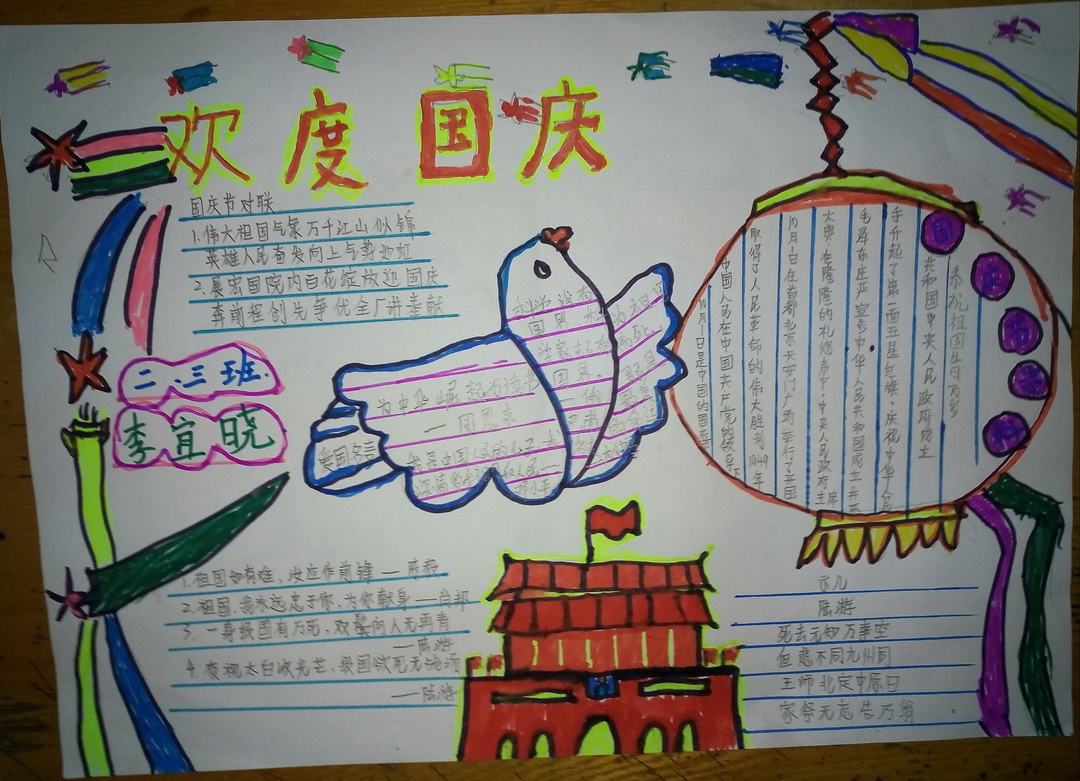 欢度国庆
国庆节对联
1.伟大祖国气象万千江山似锦
英雄人民奋发向上气势如虹
2.襄宏国院内百花绽放迎国庆
奔前程创先争优全厂讲奉献
二.三班
李宜晓
为中华崛起而读书
—周恩来
爱国名言
我是中国人民的儿子,
深情
10月1日是中国的国庆
中国人民在中国共产党领导下
取得了人民革命的伟大胜利1949年
10月1日在首都北京天安门广场举行了开国
大典,在隆隆的礼炮声中,中央人民政府主席
毛泽东庄严宣专中华人民共和国成立并亲
手升起了第一面五星红旗。庆祝中华人民
共和国中央人民政府成立
祝祖国生日万岁
1.祖国如有难,汝应作前锋—陈毅
2.祖国,我永远忠于你,为你献身—肖邦
3.一身报国有万死,双鬓向人无再青
—陆游
4.夜视太白收光芒,报国欲死无战场
—陆游
示儿
陆游
死去元知万事空
但悲不同九州同
王师北定中原日
家祭无忘告乃翁